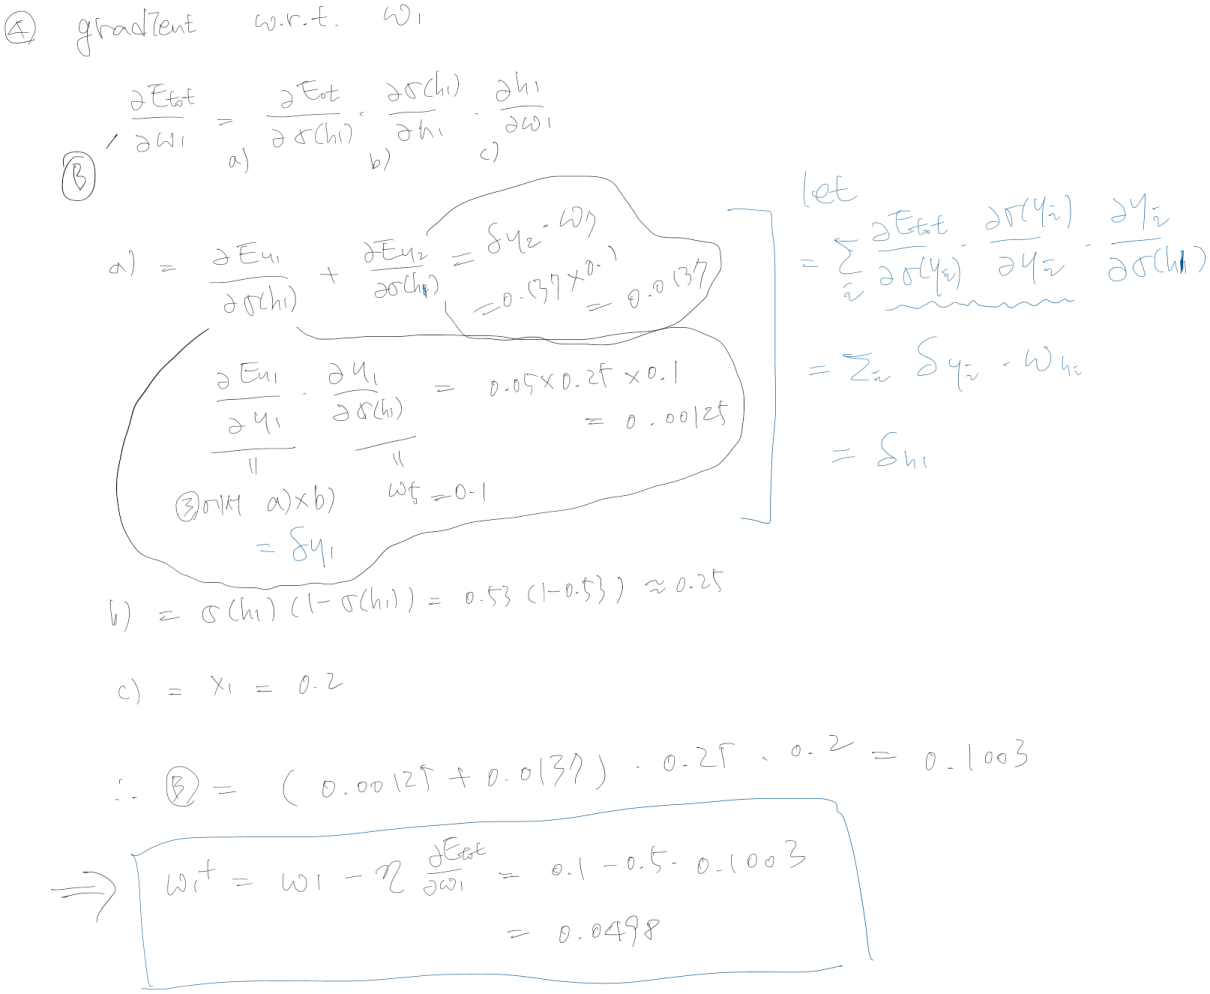 ④ gradient w.r.t. w₁
∂Etot/∂w₁ = ∂Etot/∂σ(h₁) · ∂σ(h₁)/∂h₁ · ∂h₁/∂w₁
a) b) c)
Ⓑ
a) = ∂Ey₁/∂σ(h₁) + ∂Ey₂/∂σ(h₁) = δy₂·w₇
= 0.137×0.1
= 0.0137
∂Ey₁/∂y₁ · ∂y₁/∂σ(h₁) = 0.05×0.25×0.1
= 0.00125
③에서 a)×b) w₅=0.1
= δy₁
let
= Σᵢ ∂Etot/∂σ(yᵢ) · ∂σ(yᵢ)/∂yᵢ · ∂yᵢ/∂σ(h₁)
= Σᵢ δyᵢ · whᵢ
= δh₁
b) = σ(h₁)(1-σ(h₁)) = 0.53(1-0.53) ≈ 0.25
c) = x₁ = 0.2
∴ Ⓑ = (0.00125+0.0137) · 0.25 · 0.2 = 0.1003
⇒ w₁⁺ = w₁ - η ∂Etot/∂w₁ = 0.1-0.5·0.1003
= 0.0498